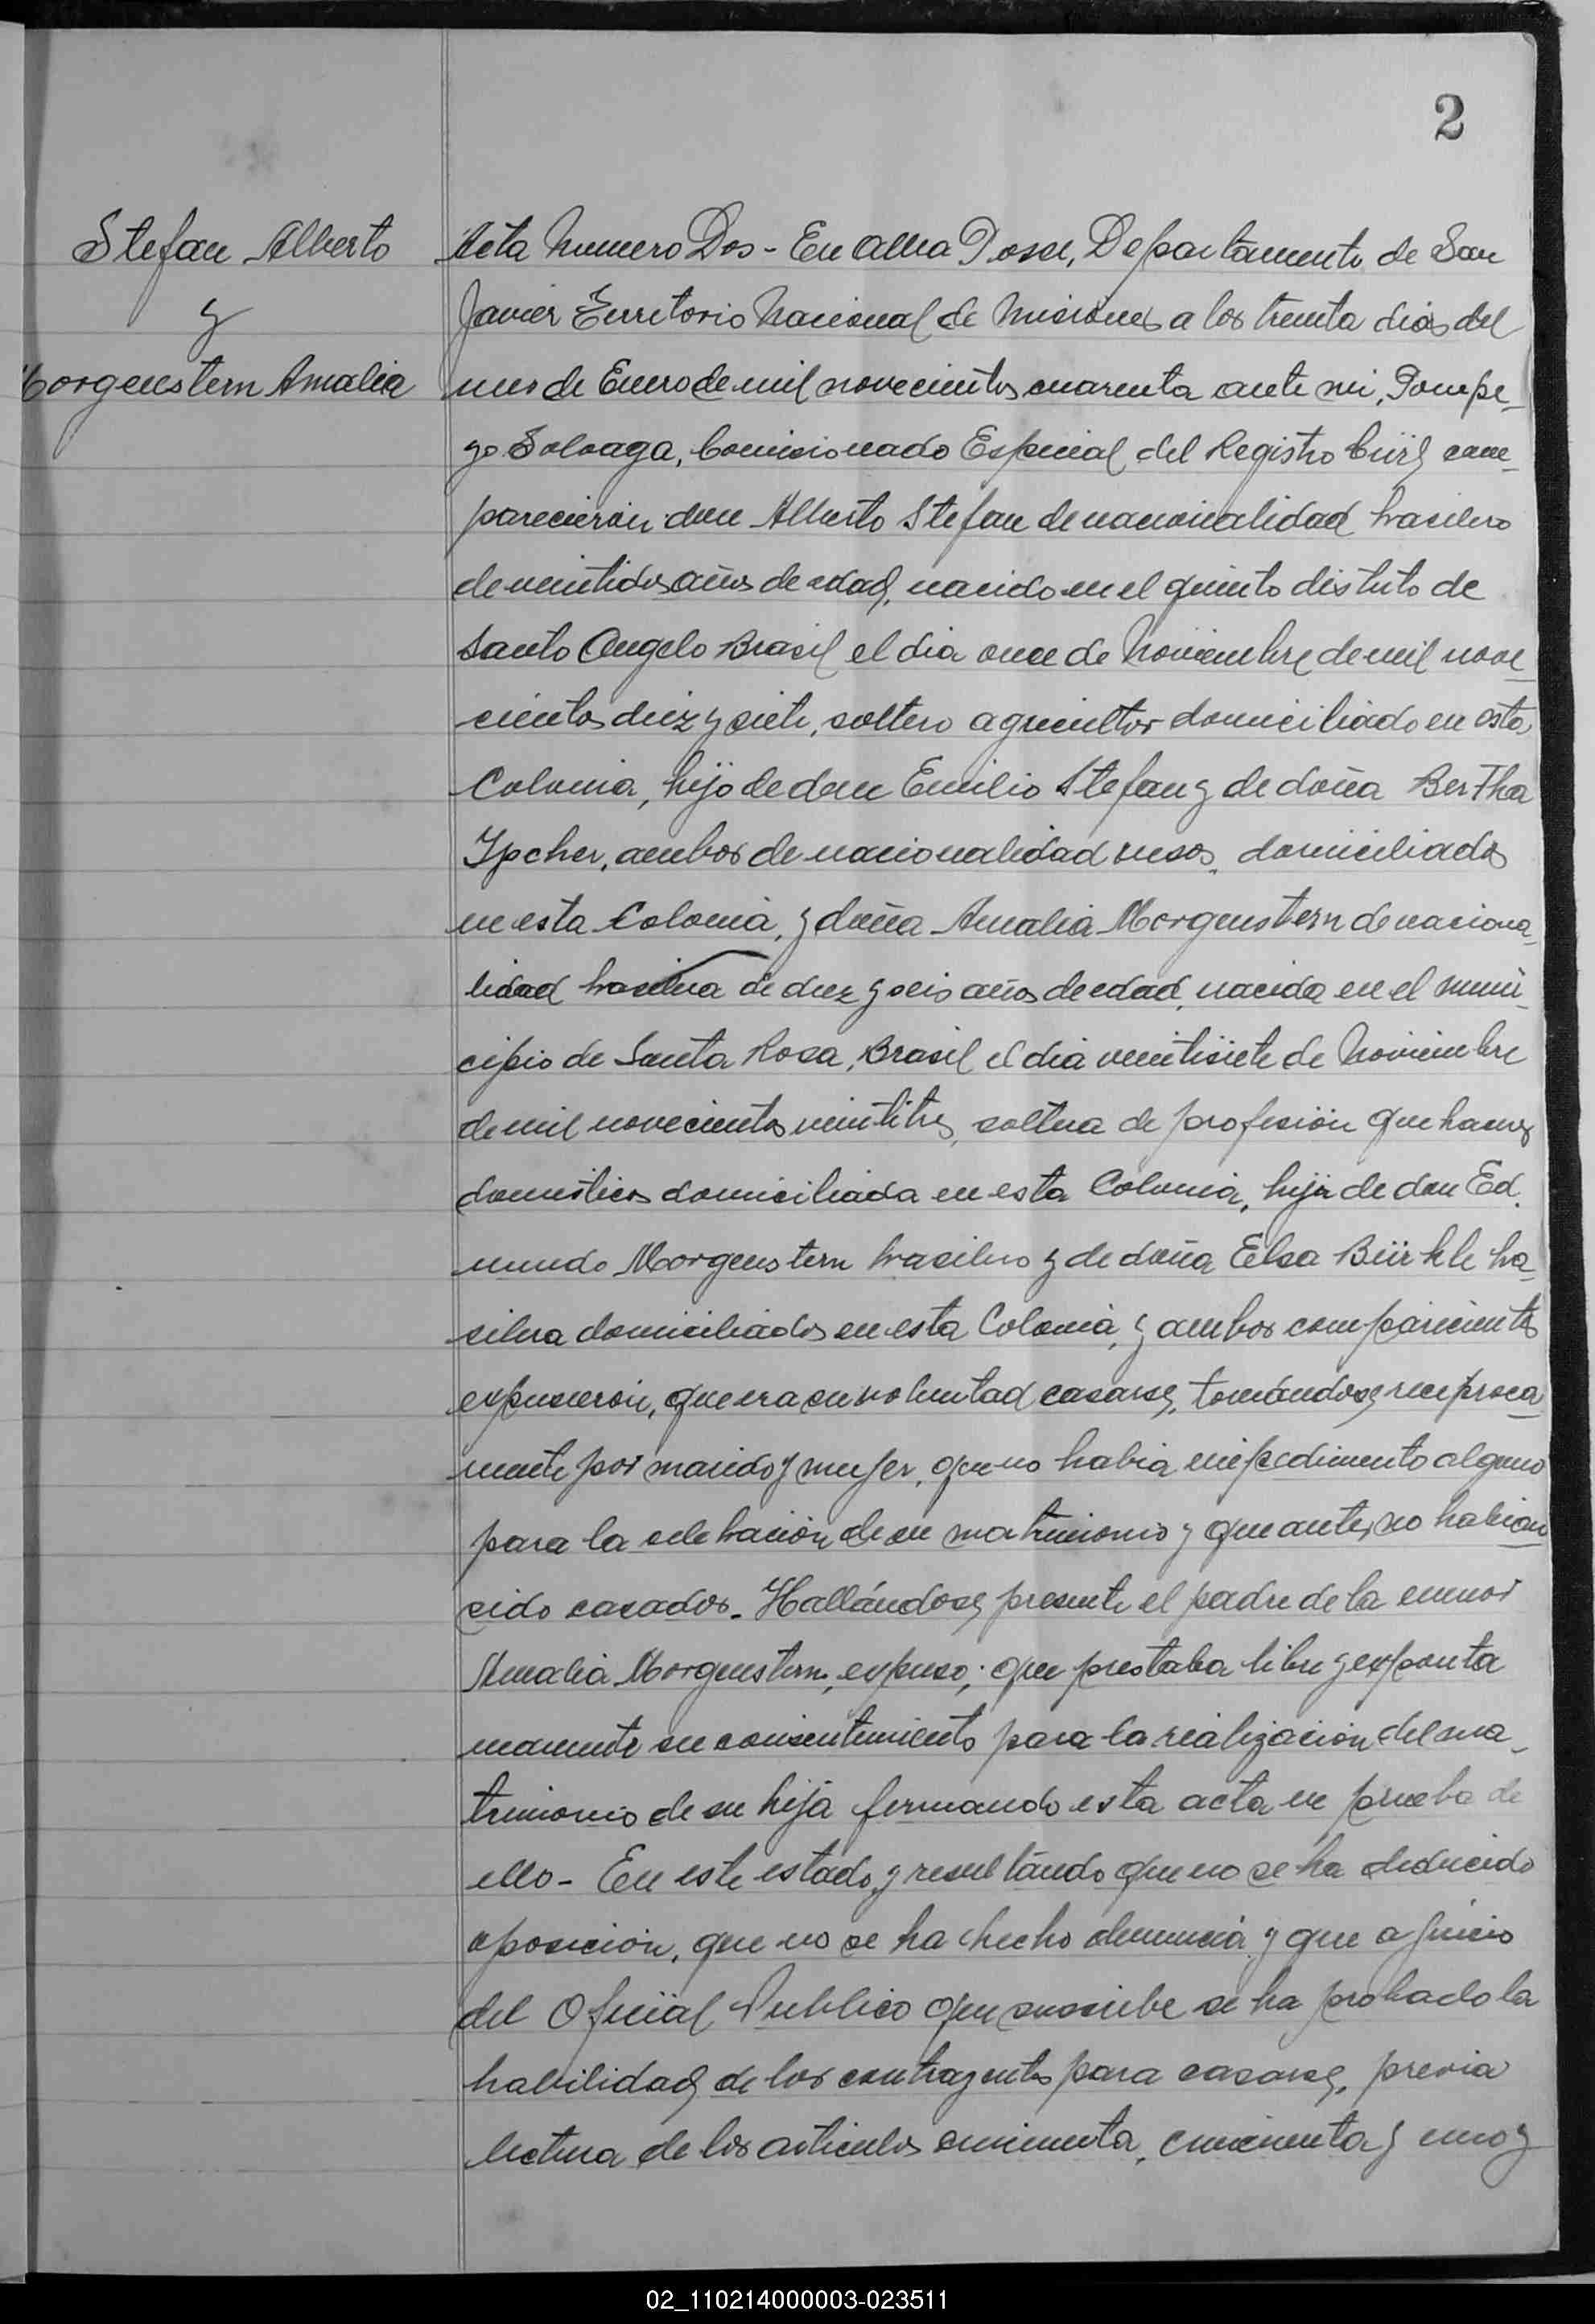 2
Stefan Alberto
y
Morgenstern Amalia
Acta Numero Dos - En Alba Posse, Departamento de San
Javier Territorio Nacional de Misiones a los treinta dias del
mes de Enero de mil novecientos cuarenta ante mi, Pompe-
yo Soloaga, Comisionado Especial del Registro Civil com-
parecieron don Alberto Stefan de nacionalidad brasilero
de veintidos años de edad, nacido en el quinto distrito de
Santo Angelo Brasil el dia once de Noviembre de mil nove
cientos diez y siete, soltero agricultor domiciliado en esta
Colonia, hijo de don Emilio Stefan y de doña Bertha
Ipcher, ambos de nacionalidad rusos, domiciliados
en esta Colonia, y doña Amalia Morgenstern de naciona-
lidad brasilera de diez y seis años de edad, nacida en el muni-
cipio de Santa Rosa, Brasil el dia veintisiete de Noviembre
de mil novecientos veintitres, soltera de profesión quehaceres
domesticos domiciliada en esta Colonia, hija de don Ed.
mundo Morgenstern brasilero y de doña Elsa Bürkle bra-
silera domiciliados en esta Colonia, y ambos comparecientes
expusieron, que era su voluntad casarse, tomándose reciproca
mente por marido y mujer, que no habia impedimento alguno
para la celebración de su matrimonio y que antes no habian
sido casados. Hallándose presente el padre de la menor
Amalia Morgenstern, expuso; que prestaba libre y exponta
neamente su consentimiento para la realización del ma-
trimonio de su hija firmando esta acta en prueba de
ello - En este estado y resultando que no se ha deducido
oposición, que no se ha hecho denuncia y que a juicio
del Oficial Publico que suscribe se ha probado la
habilidad de los contrayentes para casarse, previa
lectura de los articulos cincuenta, cincuenta y uno y
02_110214000003-023511